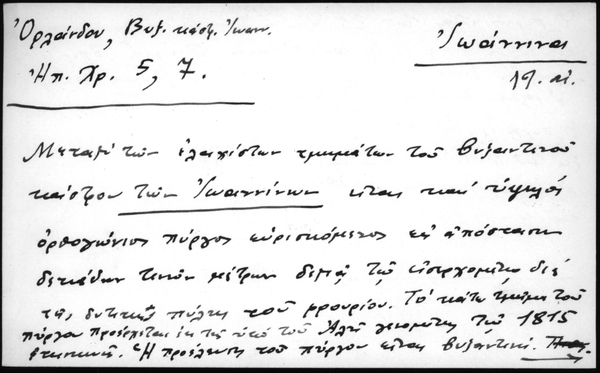 Ὀρλάνδου, Βυζ. κάστρ. Ἰωαν.
Ἰωάννινα
Ἠπ. Χρ. 5, 7.
19. αἰ.
Μεταξὺ τῶν ἐλαχίστων τμημάτων τοῦ βυζαντινοῦ
κάστρου τῶν Ἰωαννίνων εἶναι καὶ ὑψηλὸς
ὀρθογώνιος πύργος εὑρισκόμενος εἰς ἀπόστασιν
δεκάδων τινῶν μέτρων δεξιᾷ τῷ εἰσερχομένῳ διὰ
τῆς δυτικῆς πύλης τοῦ φρουρίου. Τὸ κάτω τμῆμα τοῦ
πύργου προέρχεται ἐκ τῆς ὑπὸ τοῦ Ἀλῆ γενομένης τῷ 1815
ἐπισκευῆς. Ἡ προέλευσις τοῦ πύργου εἶναι βυζαντινή.